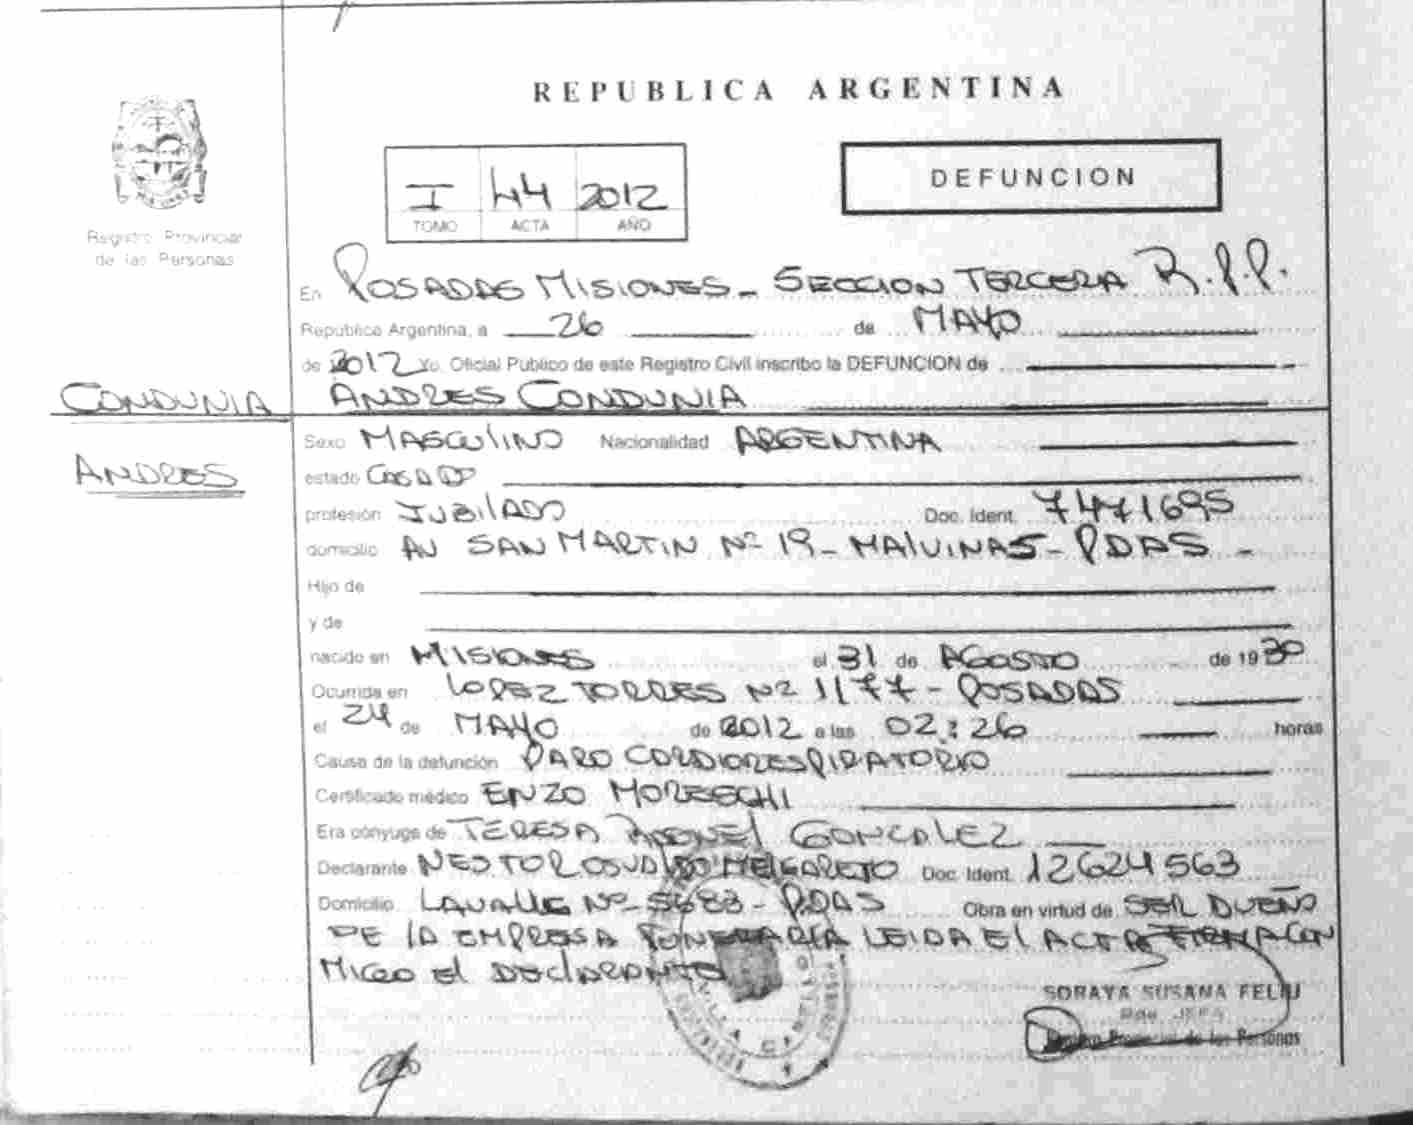 REPUBLICA ARGENTINA
Registro Provincial
de las Personas
I 44 2012
TOMO ACTA AÑO
DEFUNCION
En POSADAS MISIONES - SECCION TERCERA R.P.P.
Republica Argentina, a 26 de MAYO
de 2012 Yo, Oficial Público de este Registro Civil inscribo la DEFUNCION de
CONDUNIA
ANDRES
ANDRES CONDUNIA
Sexo MASCULINO Nacionalidad ARGENTINA
estado CASADO
profesión JUBILADO Doc. Ident. 7471695
domicilio AV SAN MARTIN Nº 19 - MALVINAS - PDAS -
Hijo de
y de
nacido en MISIONES el 31 de AGOSTO de 1930
Ocurrida en LOPEZ TORRES Nº 1177 - POSADAS
el 24 de MAYO de 2012 a las 02:26 horas
Causa de la defunción PARO CARDIORESPIRATORIO
Certificado médico ENZO MORESCHI
Era cónyuge de TERESA RAQUEL GONZALEZ
Declarante NESTOR OSVALDO MELGAREJO Doc. Ident. 12624563
Domicilio LAVALLE Nº 5683 - PDAS Obra en virtud de SER DUEÑO
DE LA EMPRESA FUNERARIA LEIDA El ACTA FIRMA CON
MIGO El DEClARANTE
SORAYA SUSANA FELIU
de las Personas